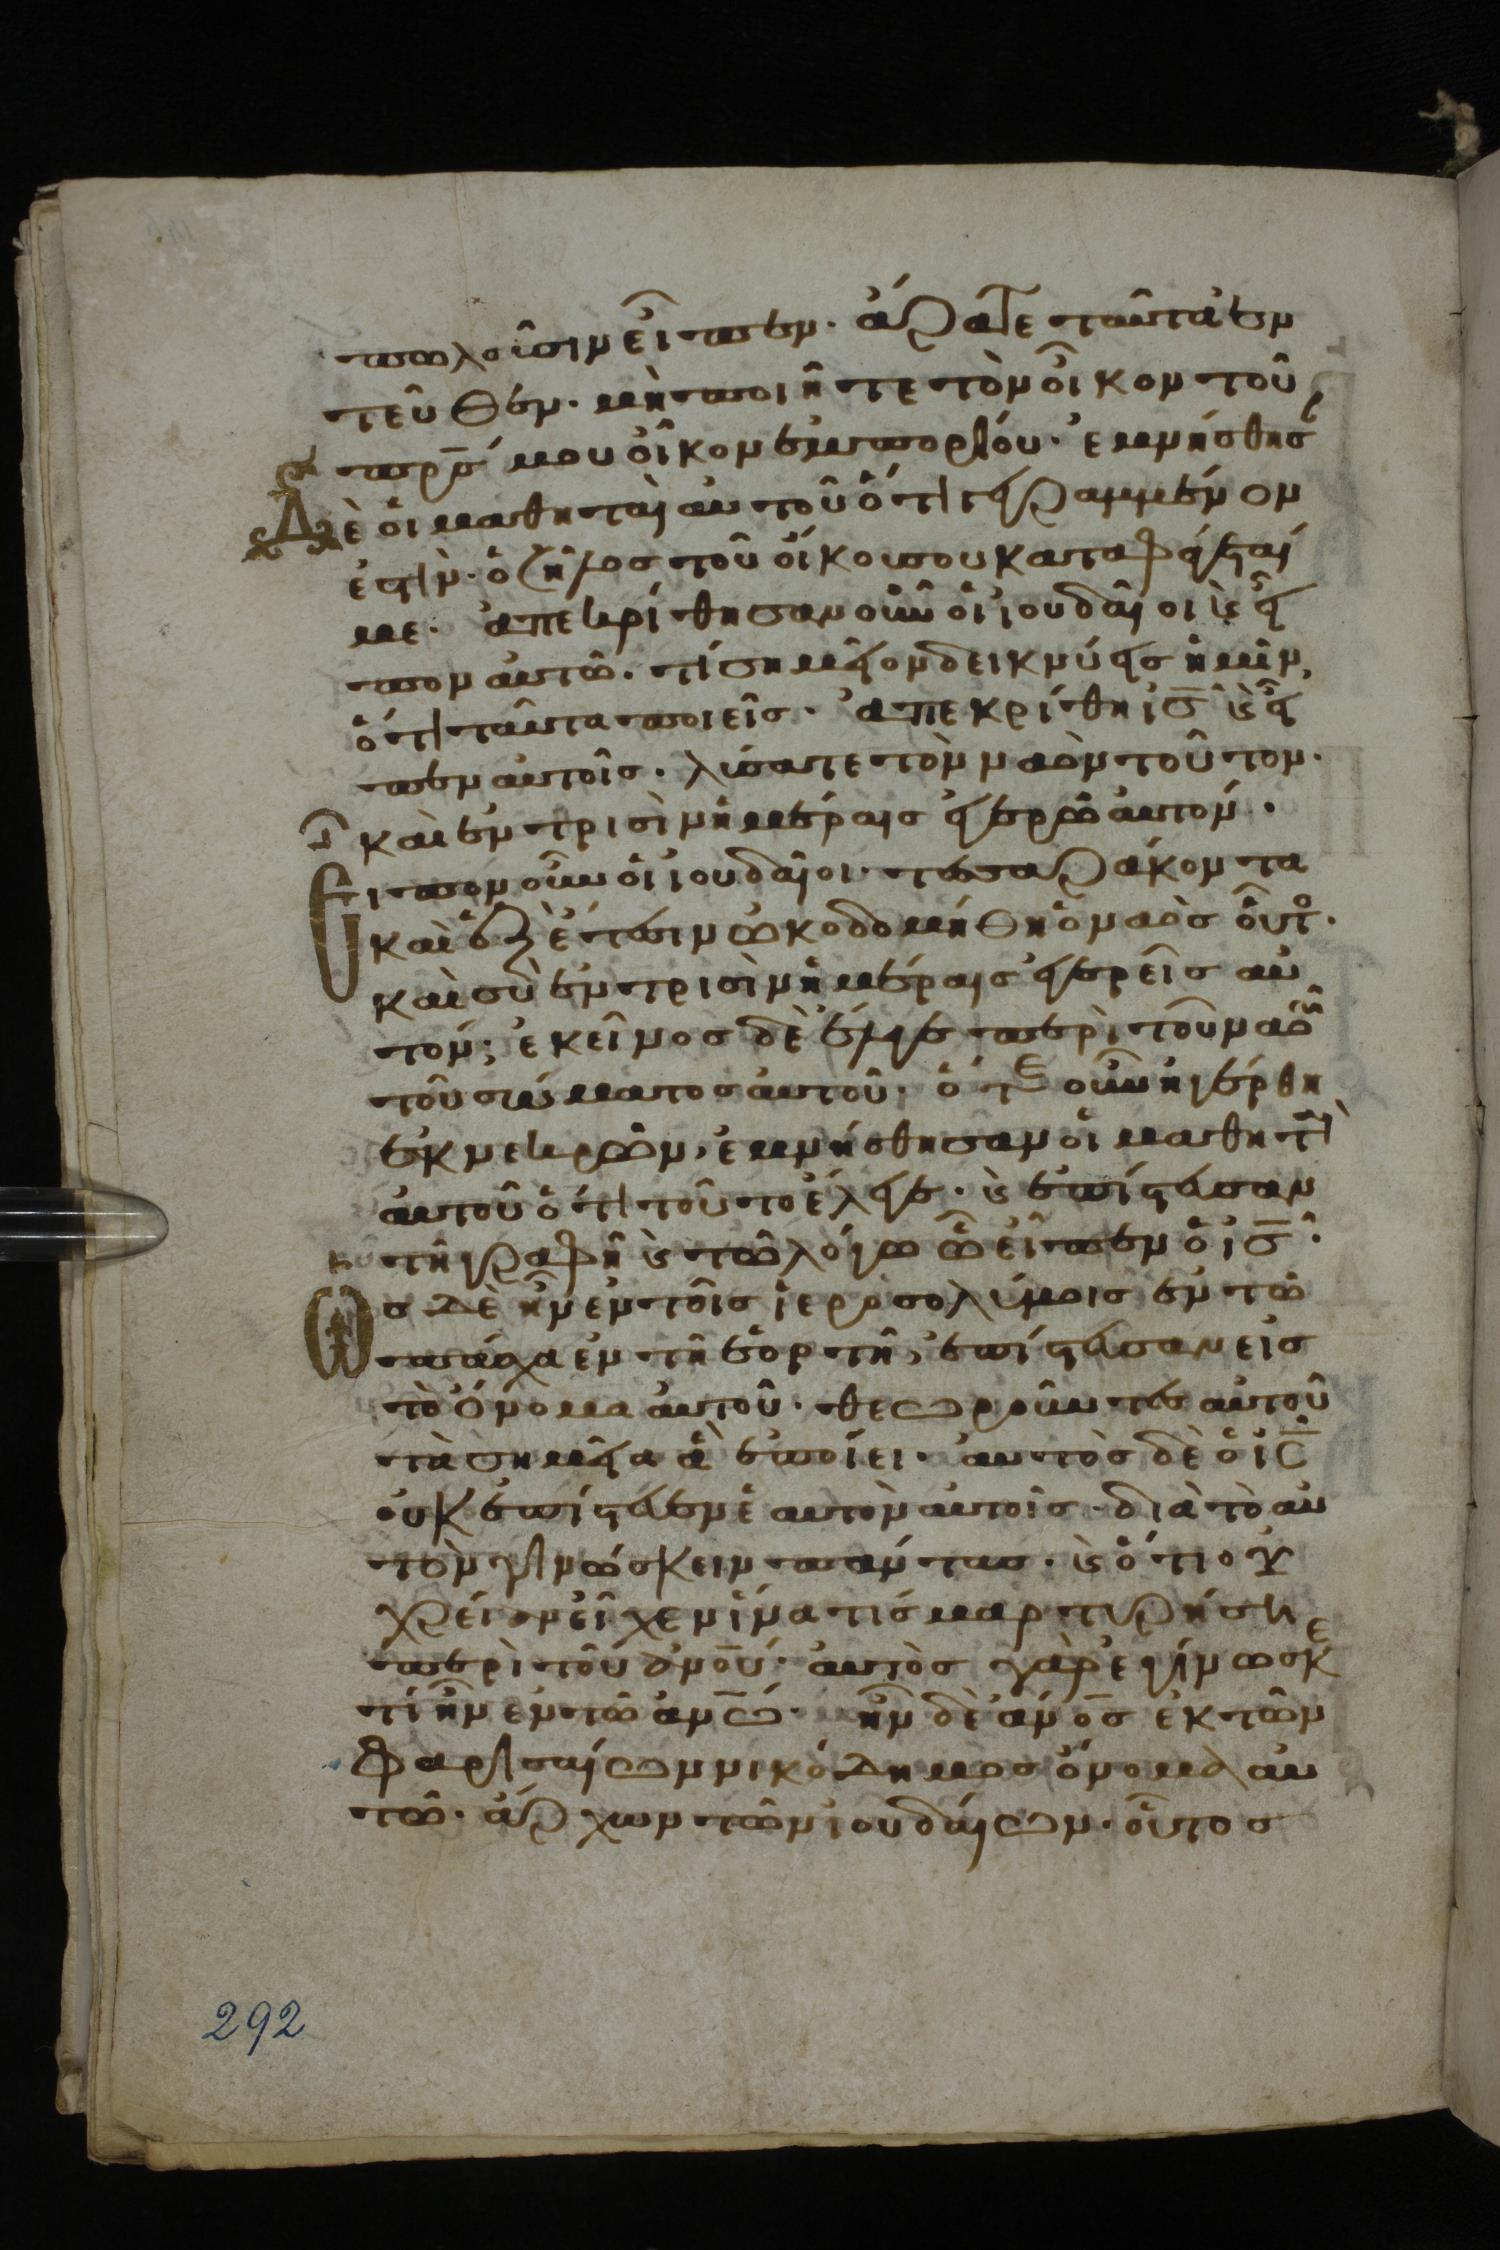 πωλοῦσιν εἶπεν· ἄρατε ταῦτα ἐν
τεῦθεν· μὴ ποιῆτε τὸν οἶκον τοῦ
πρ̅ς μου οἶκον ἐμπορίου· ἐμνήσθησ
Δὲ οἱ μαθηταὶ αυτοῦ ὅτι γεγραμμένον
ἐστὶν· ὁ ζῆλος τοῦ οἴκου σου καταφάγεται
με· ἀπεκρίθησαν οὖν οἱ ἰουδαῖοι κ(αὶ) εἶ
πον αυτῶ· τί σημεῖον δεικνύεις ἡμῖν,
ὅτι ταῦτα ποιεῖς· ἀπεκρίθη ι̅ς̅ κ(αὶ) εἶ
πεν αυτοῖς· λύσατε τὸν ναὸν τοῦτον·
καὶ ἐν τρισὶν ἡμέραις ἐγερῶ αυτόν·
Εἶπον οὖν οἱ ἰουδαῖοι· τεσσαράκοντα
καὶ ἓξ ἔτεσιν ὠκοδομήθη ὁ ναὸς οὗτο·
καὶ σὺ ἐν τρισὶν ἡμέραις ἐγερεῖς αυ
τόν; ἐκεῖνος δὲ ἔλεγε περὶ τοῦ ναοῦ
τοῦ σώματος αυτοῦ· ὅτε οὖν ἠγέρθη
ἐκ νεκρῶν, ἐμνήσθησαν οἱ μαθητὶ
αυτοῦ ὅτι τοῦτο ἔλεγε· κ(αὶ) ἐπίστευσαν
τῆ γραφῆ κ(αὶ) τῶ λόγω ὧ εἶπεν ὁ ι̅ς̅·
Ὡς Δὲ ἦν ἐν τοῖς ἱεροσολύμοις ἐν τῶ
πάσχα ἐν τῆ ἑορτῆ, ἐπίστευσαν εἰς
τὸ ὄνομα αυτοῦ· θεωροῦντες αυτοῦ
τὰ σημεῖα ἃ ἐποίει· αυτὸς δὲ ὁ ι̅ς̅
ουκ ἐπίστευεν ἑαυτὸν αυτοῖς· διὰ τὸ αυ
τὸν γινώσκειν πάντας· κ(αὶ) ὅτι ου
χρείαν εἶχεν ἵνα τὶς μαρτυρήση
περὶ τοῦ α̅ν̅ο̅υ̅· αυτὸς γὰρ ἐγίνωσκε
τί ἦν ἐν τῶ α̅ν̅ω̅· ἦν δὲ α̅ν̅ο̅ς̅ ἐκ τῶν
φαρισαίων νικόδημος ὄνομα αυ
τῶ· ἄρχων τῶν ἰουδαίων· οὗτος
292